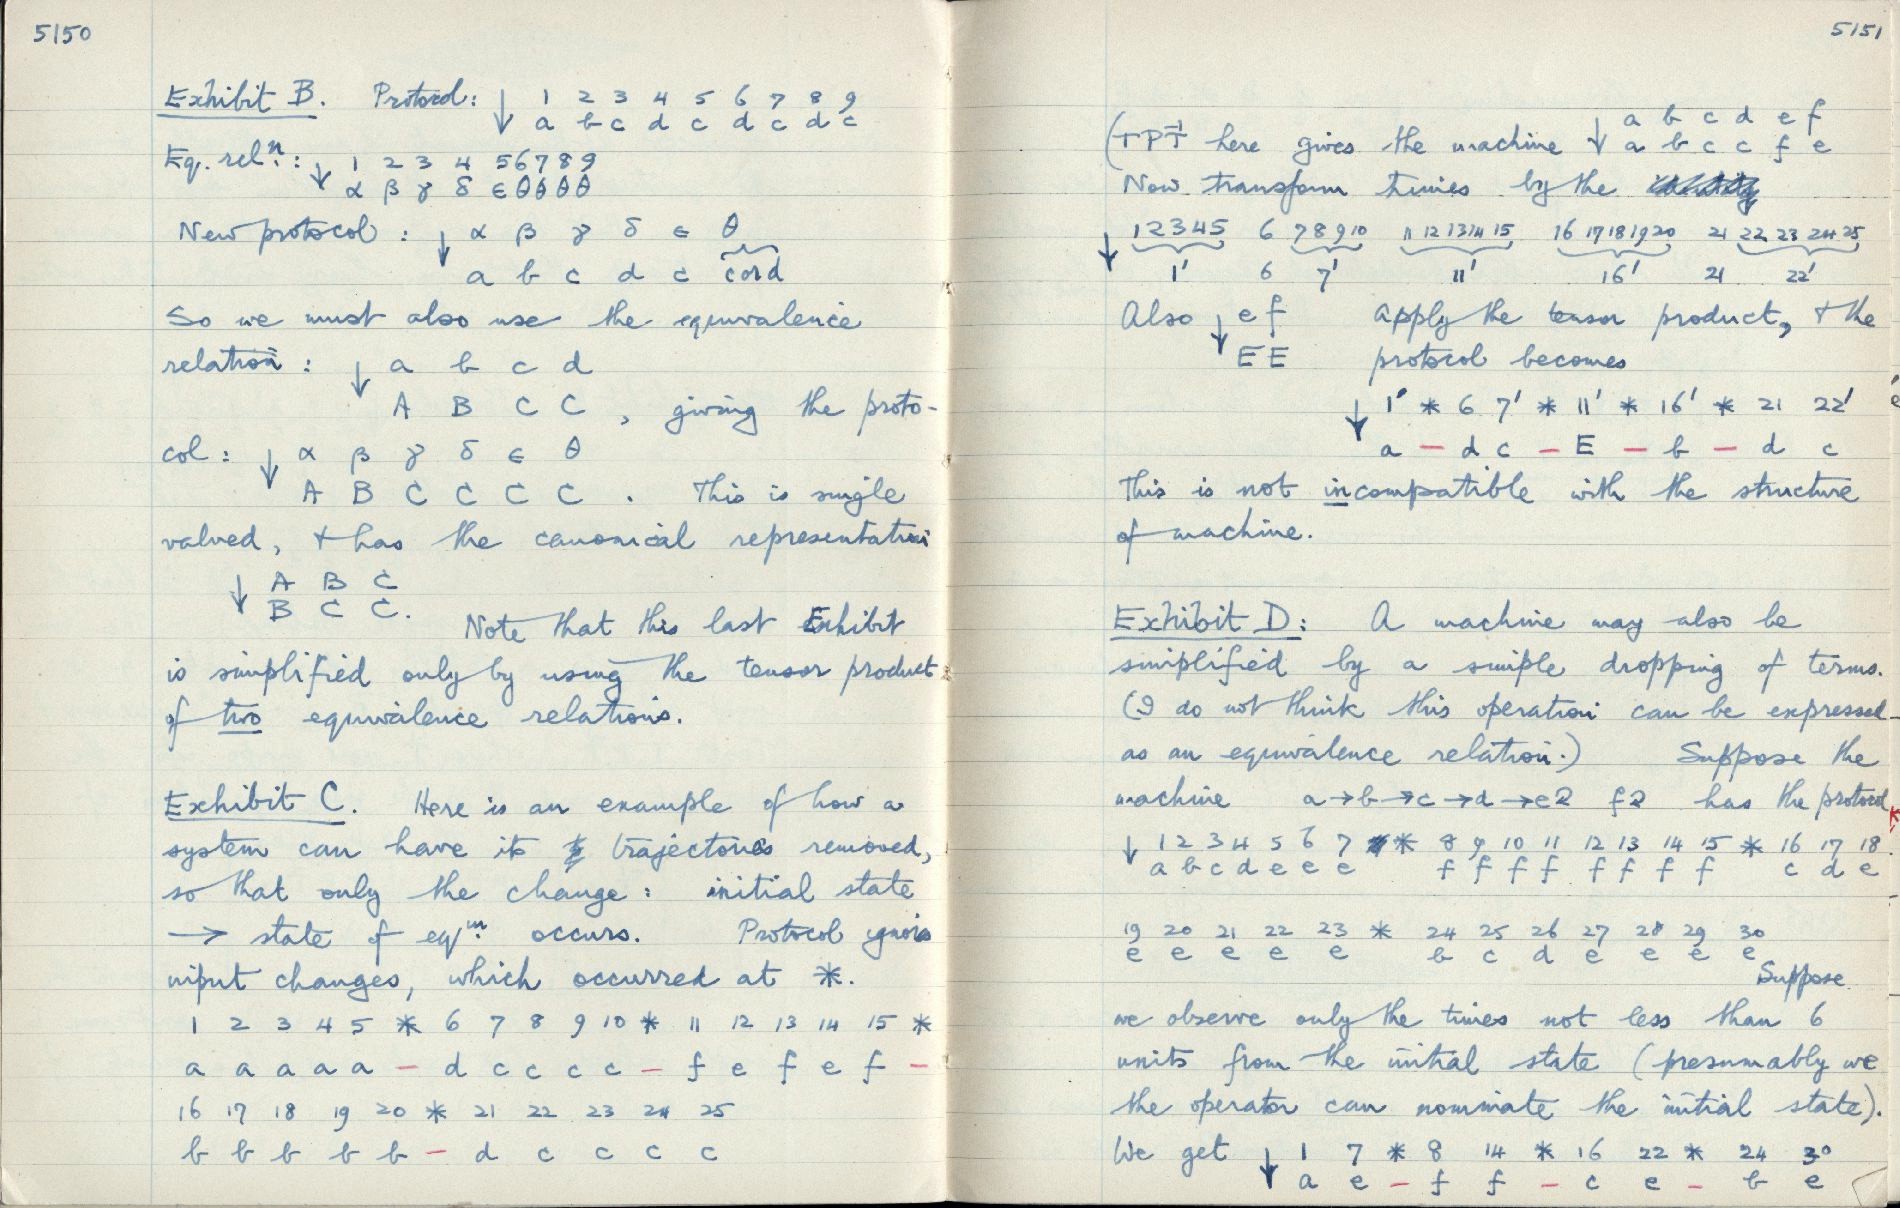 5150
Exhibit B. Protocol: ↓ 1 2 3 4 5 6 7 8 9
a b c d c d c d c
Eq. rel.n: ↓ 1 2 3 4 5 6 7 8 9
α β γ δ ϵ θ θ θ θ
New protocol: ↓ α β γ δ ϵ θ
a b c d c c or d
So we must also use the equivalence
relation: ↓ a b c d
A B C C , giving the proto-
col: ↓ α β γ δ ϵ θ
A B C C C C . This is single
valued, + has the canonical representation
↓ A B C
B C C.
Note that this last Exhibit
is simplified only by using the tensor product
of two equivalence relations.
Exhibit C. Here is an example of how a
system can have its trajectories removed,
so that only the change: initial state
→ state of eqm. occurs. Protocol ignores
input changes, which occurred at *.
1 2 3 4 5 * 6 7 8 9 10 * 11 12 13 14 15 *
a a a a a – d c c c c – f e f e f –
16 17 18 19 20 * 21 22 23 24 25
b b b b b – d c c c c
5151
(TPT⁻¹ here gives the machine ↓ a b c d e f
a b c c f e
Now transform times by the
↓ 1 2 3 4 5 6 7 8 9 10 11 12 13 14 15 16 17 18 19 20 21 22 23 24 25
1' 6 7' 11' 16' 21 22'
Also ↓ e f Apply the tensor product, + the
E E protocol becomes
↓ 1' * 6 7' * 11' * 16' * 21 22'
a – d c – E – b – d c
This is not incompatible with the structure
of machine.
Exhibit D: A machine may also be
simplified by a simple dropping of terms.
(I do not think this operation can be expressed
as an equivalence relation.) Suppose the
machine a→b→c→d→e2 f2 has the protocol
↓ 1 2 3 4 5 6 7 * 8 9 10 11 12 13 14 15 * 16 17 18
a b c d e e e f f f f f f f f c d e
19 20 21 22 23 * 24 25 26 27 28 29 30
e e e e e b c d e e e e
Suppose
we observe only the times not less than 6
units from the initial state (presumably we
the operator can nominate the initial state).
We get ↓ 1 7 * 8 14 * 16 22 * 24 30
a e – f f – c e – b e